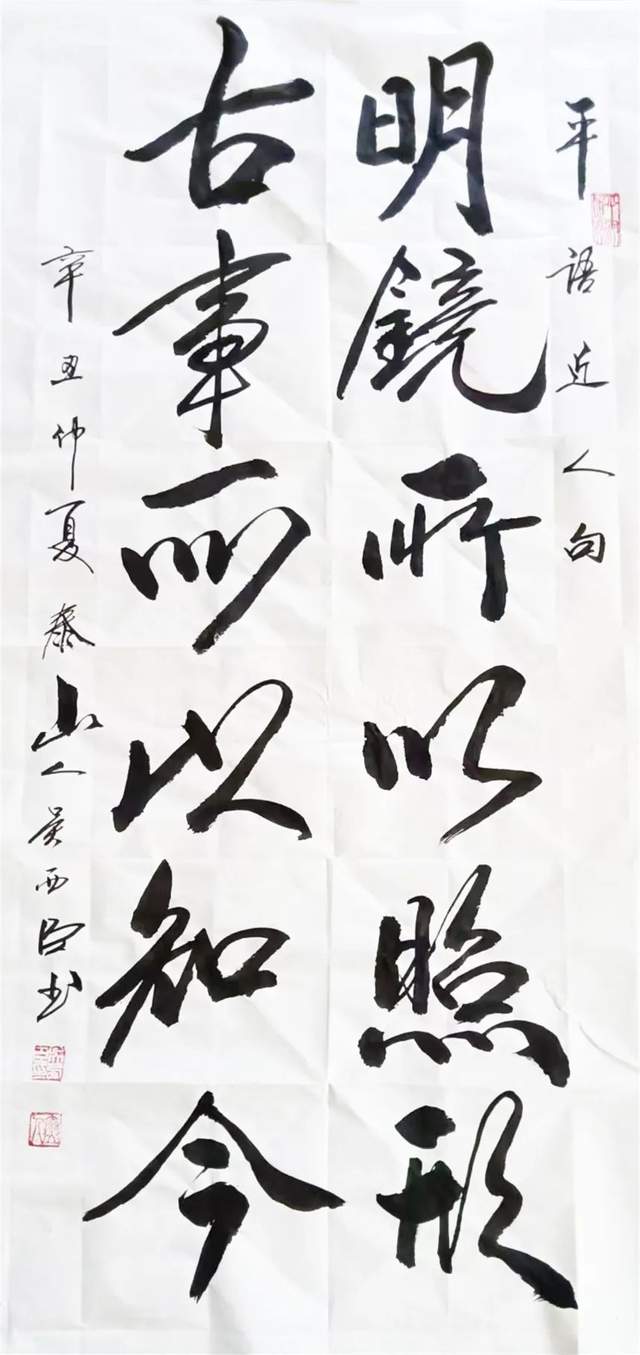 平語近人句
明鏡所以照形
古事所以知今
辛丑仲夏泰山人吳西臣书